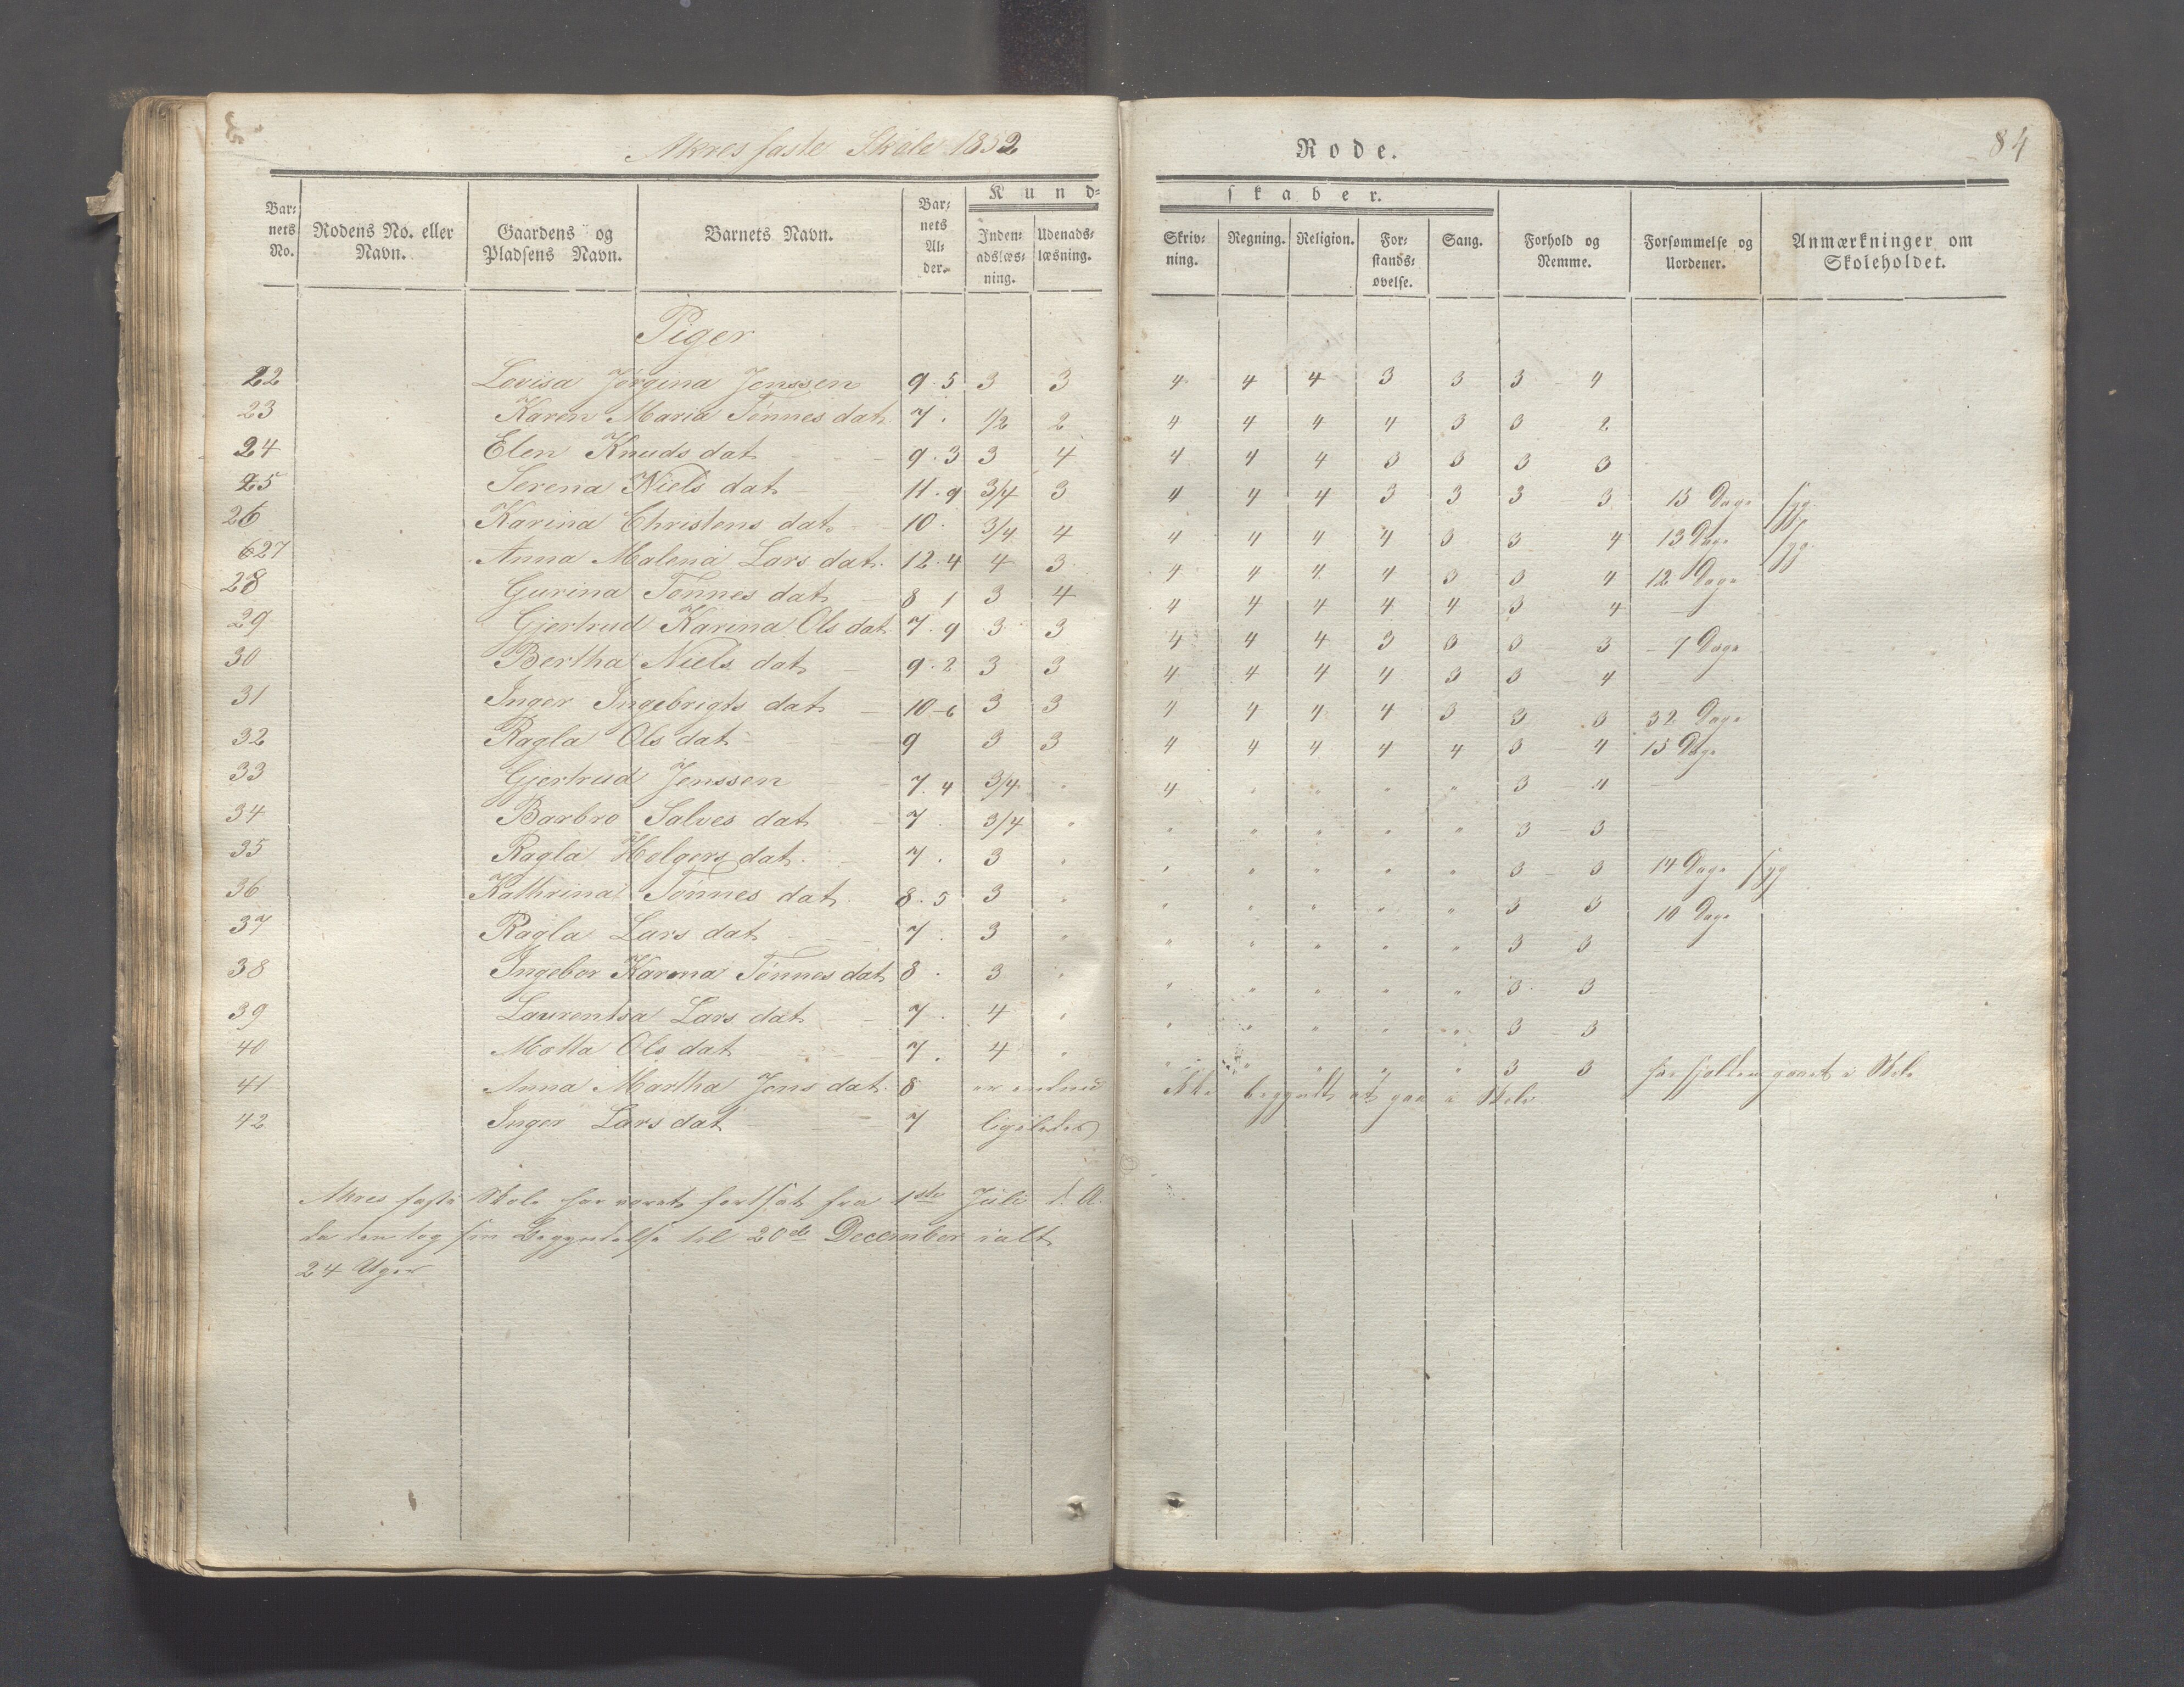 Akres faste Skole 1852
Rode. 84
Bar-nets No. | Rodens No. eller Navn. | Gaardens og Pladsens Navn. | Barnets Navn. | Bar-nets Al-der. | Kund-skaber. | Inden-adslæs-ning. | Udenads-læsning. | Skriv-ning. | Regning. | Religion. | For-stands-øvelse. | Sang. | Forhold og Nemme. | Forsømmelse og Uordener. | Anmærkninger om Skoleholdet.
Piger
22 Lovisa Jørgina Jenssen 9.5 3 3 4 4 4 3 3 3 - 4
23 Karen Maria Tønnes dat. 7. 1/2 2 4 4 4 4 3 3 2
24 Elen Knuds dat 9.3 3 4 4 4 4 3 3 3 3
25 Serena Niels dat 11.9 3/4 3 4 4 4 3 3 3 - 3 15 Dage syg
26 Karina Christens dat 10. 3/4 4 4 4 4 4 3 3 4 13 Dage syg
27 Anna Malena Lars dat. 12.4 4 3 4 4 4 4 3 3 4 12 Dage
28 Gurina Tønnes dat 8 1 3 4 4 4 4 4 4 3 - 4 -
29 Gjertrud Karina Ols dat 7.9 3 3 4 4 4 3 3 3 - 3 - 7 Dage
30 Bertha Niels dat 9.2 3 3 4 4 4 4 3 3 - 4 -
31 Inger Ingebrigts dat 10-6 3 3 4 4 4 4 3 3 3 32 Dage
32 Ragla Ols dat 9 3 3 4 4 4 4 4 3 - 4 15 Dage
33 Gjertrud Jenssen 7.4 3/4 " 4 " " " " 3 - 4
34 Barbro Salves dat 7. 3/4 " " " " " " 3 - 3
35 Ragla Holgers dat. 7. 3 " " " " " " 3 - 3 14 Dage syg
36 Kathrina Tønnes dat. 8.5 3 " " " " " " 3 3 10 Dage
37 Ragla Lars dat 7. 3 " " " " " " 3 - 3
38 Ingebor Karina Tønnes dat 8. 3 " " " " " " 3. 3
39 Laurentsa Lars dat 7. 4 " " " " " " 3 - 3
40 Motta Ols dat 7. 4 " " " " " " 3 3 har sjelden gaaet i Skole
41 Anna Martha Jens dat. 8 er endnu ikke begyndt at gaa i Skole.
42 Inger Lars dat 7 ligeledes
Akres faste Skole har været fortsat fra 1ste Juli d. A.
da den tog sin Begyndelse til 20de December i alt
24 Uger